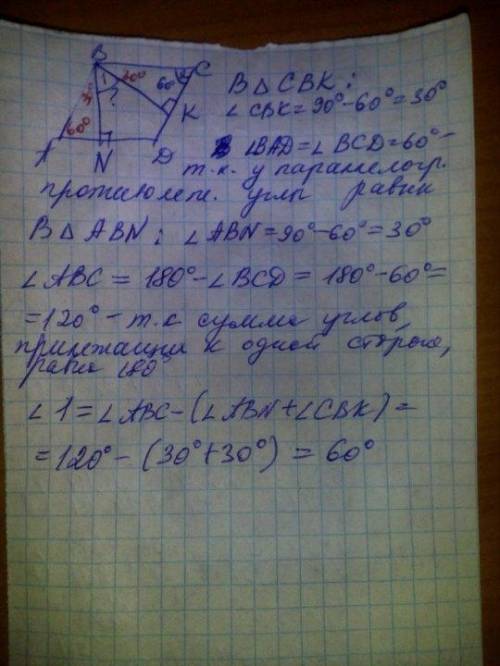 B
C
1
30°
30°
60°
?
K
60°
A
N
D
В △ CBK:
∠ CBK = 90° - 60° = 30°
∠BAD = ∠ BCD = 60° -
т.к. у параллелогр.
противолеж. углы равны
В △ ABN: ∠ ABN = 90° - 60° = 30°
∠ ABC = 180° - ∠ BCD = 180° - 60° =
= 120° - т.к сумма углов,
прилежащих к одной стороне,
равна 180°
∠ 1 = ∠ ABC - (∠ ABN + ∠ CBK) =
= 120° - (30° + 30°) = 60°